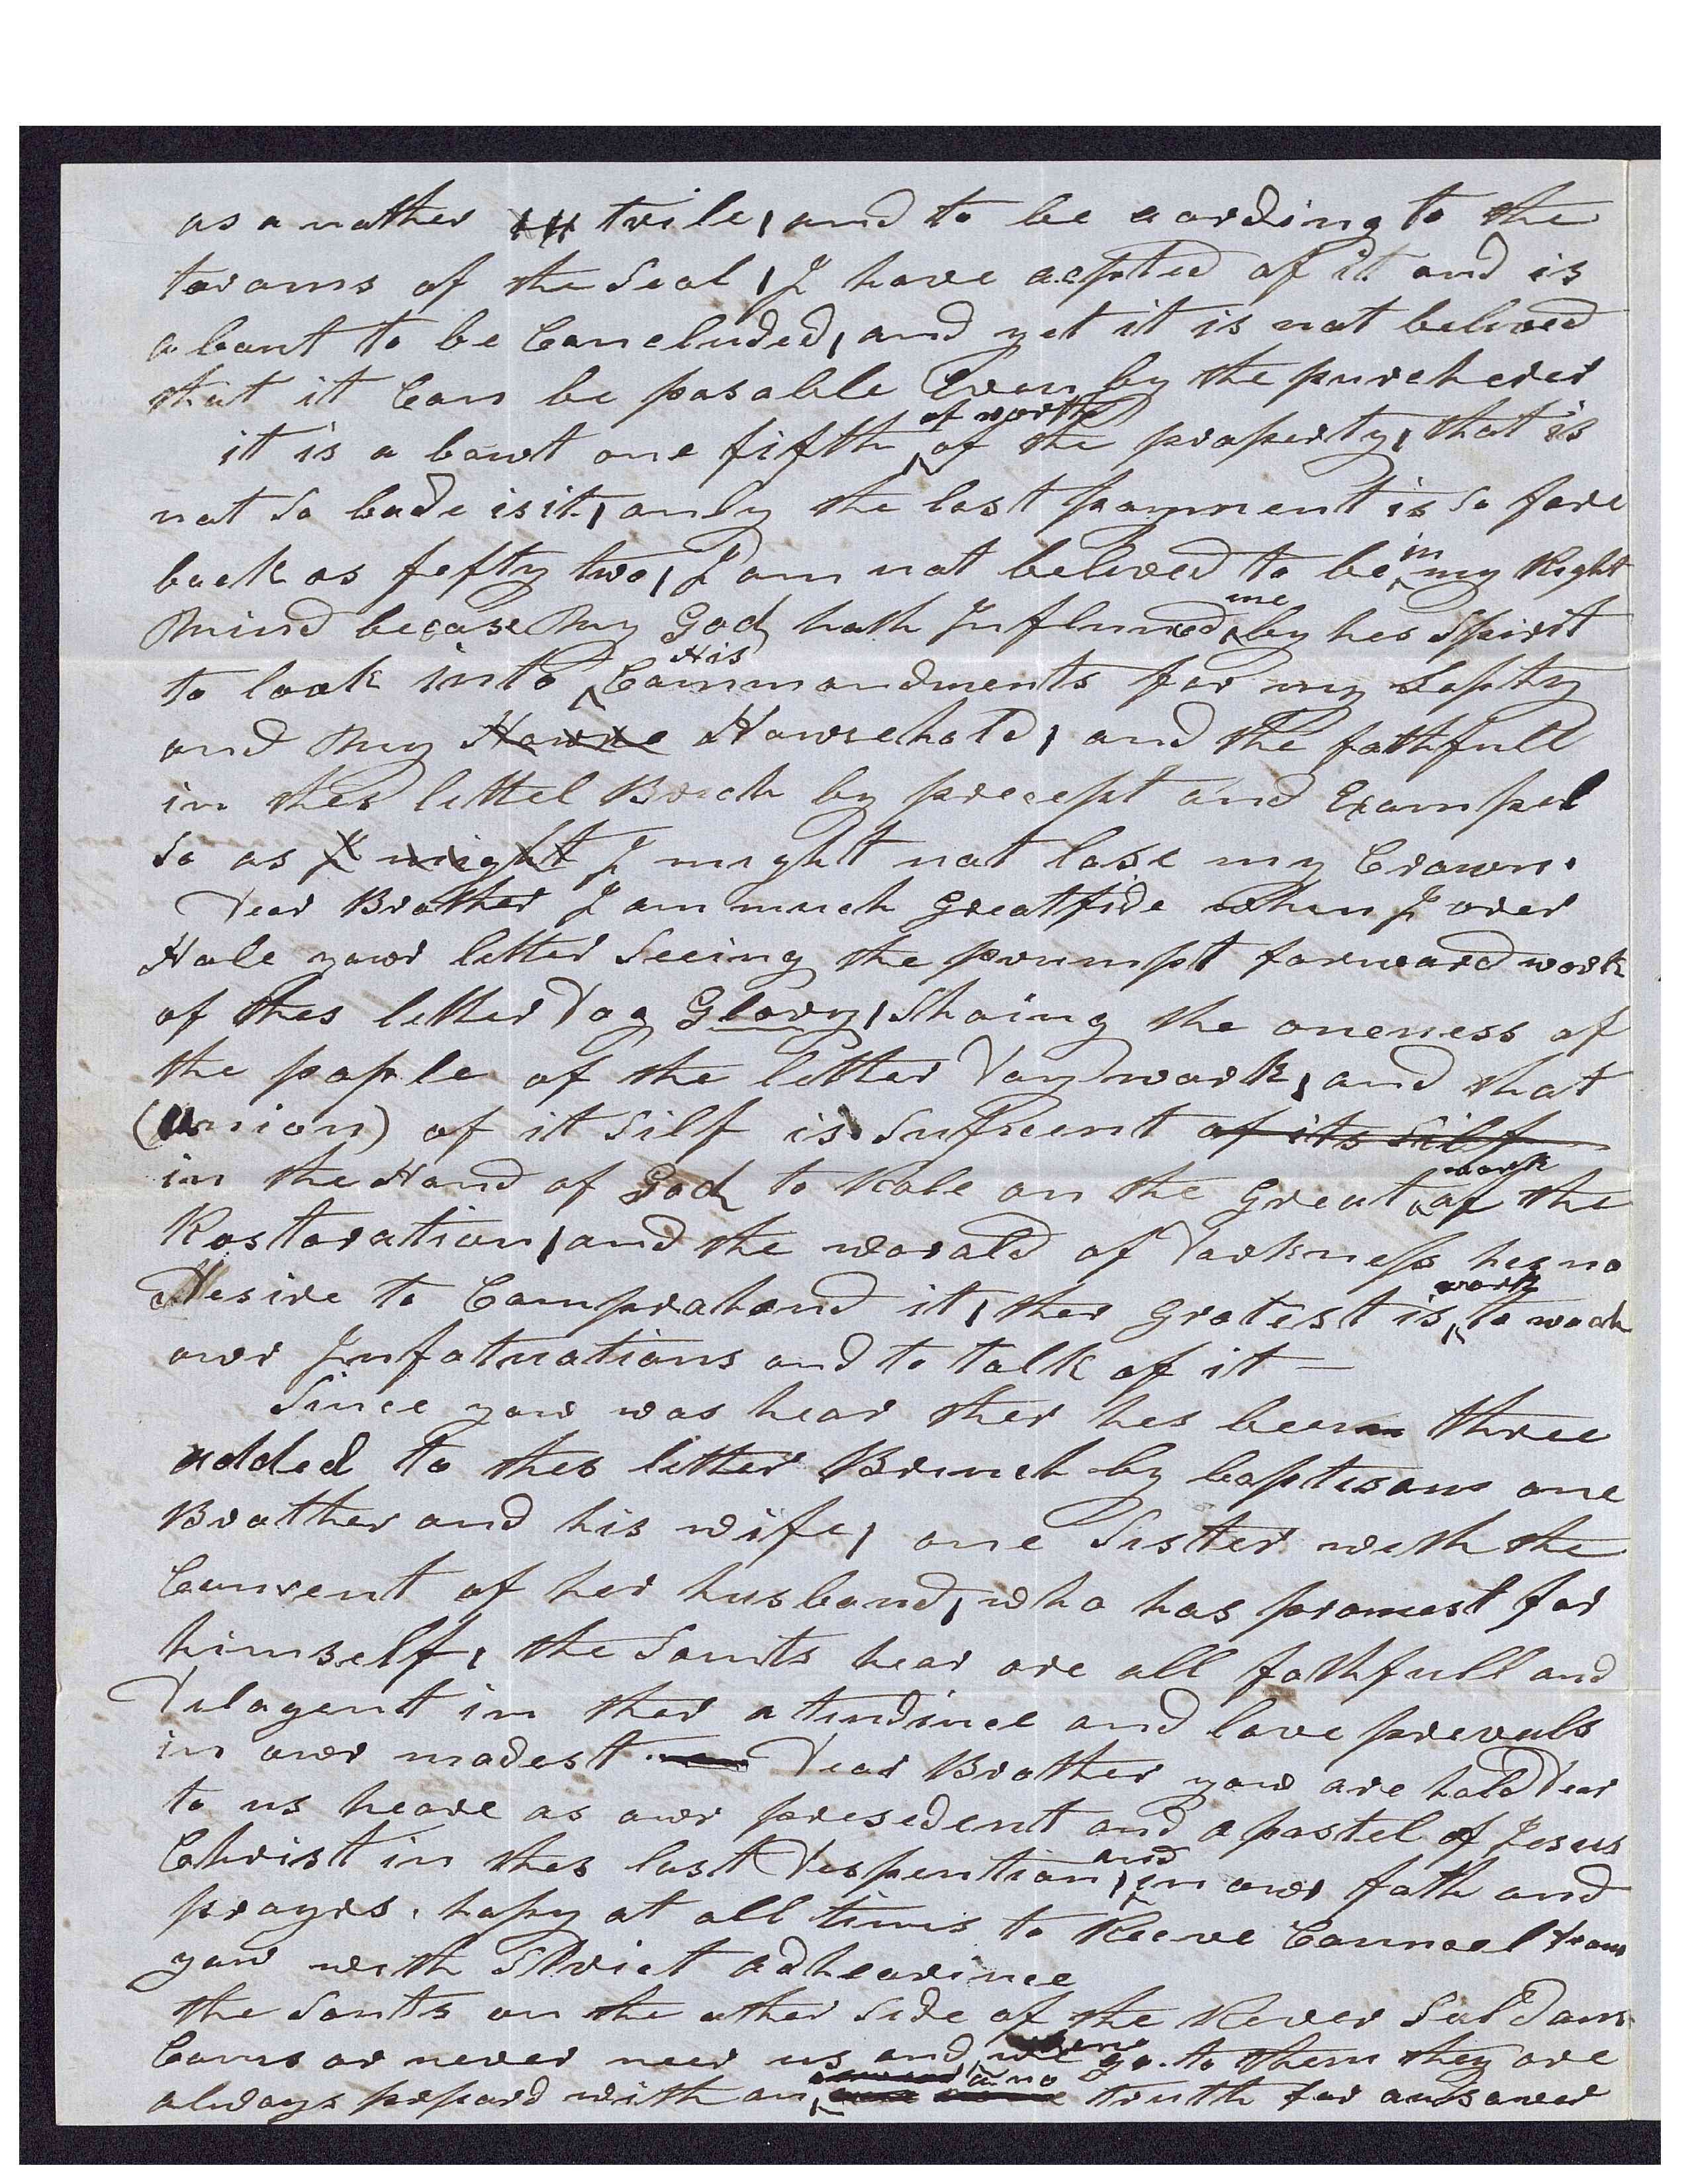 as a nather trile, and to be acording to the
tarams of the Seal, I have acepted of it and is
abaut to be Cancluded, and yet it is nat beleved
that it Can be pasable Even by the purcherer
it is a bowt one fifth of worth of the praperty, that is
nat So bade is it, anly the last payment is So fare
back as fefty two, I am nat beleved to be in my Right
Mind becase My God hath Influnced me by hes Spirit
to look into His Cammandments for my Safty
and My Howse Howsehold, and the fathfull
in thes littel Brach by precept and Exampel
So as I might I might nat lose my Crawn.
Dear Brather I am much Greatfide when I over
Hale yowr letter Seeing the prumpt forward work
of thes letter Day Glory, Shoing the oneness of
the pople of the letter Day work, and that
(Union) of it Silf is Sufscent of its Silf
in the Hand of God to Role on the Great work of the
Rastoration, and the warald of Darkness hes no
Desire to Camprahand it, ther gratest is work to moch
owr Infatuations and to talk of it —
Since yow was hear ther hes been three
added to thes litter Brench by baptisam one
Brather and his wife, one Sister with the
Cansent of her husband, who has promest far
himself, the Saints hear are all fathfull and
Delagent in ther atindince and love prevals
in owr madest Dear Brother yow are hald Dear
to us heare as owr presedent and apastel of Jesus
Christ in thes last Despention, and in owr fath and
prayrs, hapy at all tims to Receve Councel from
yow with Strict adhearince
the Sants on the ather Side of the Rever Saldam
Cams or never neer us and when we go to them they are
always prepard with an a no truth for ansawer